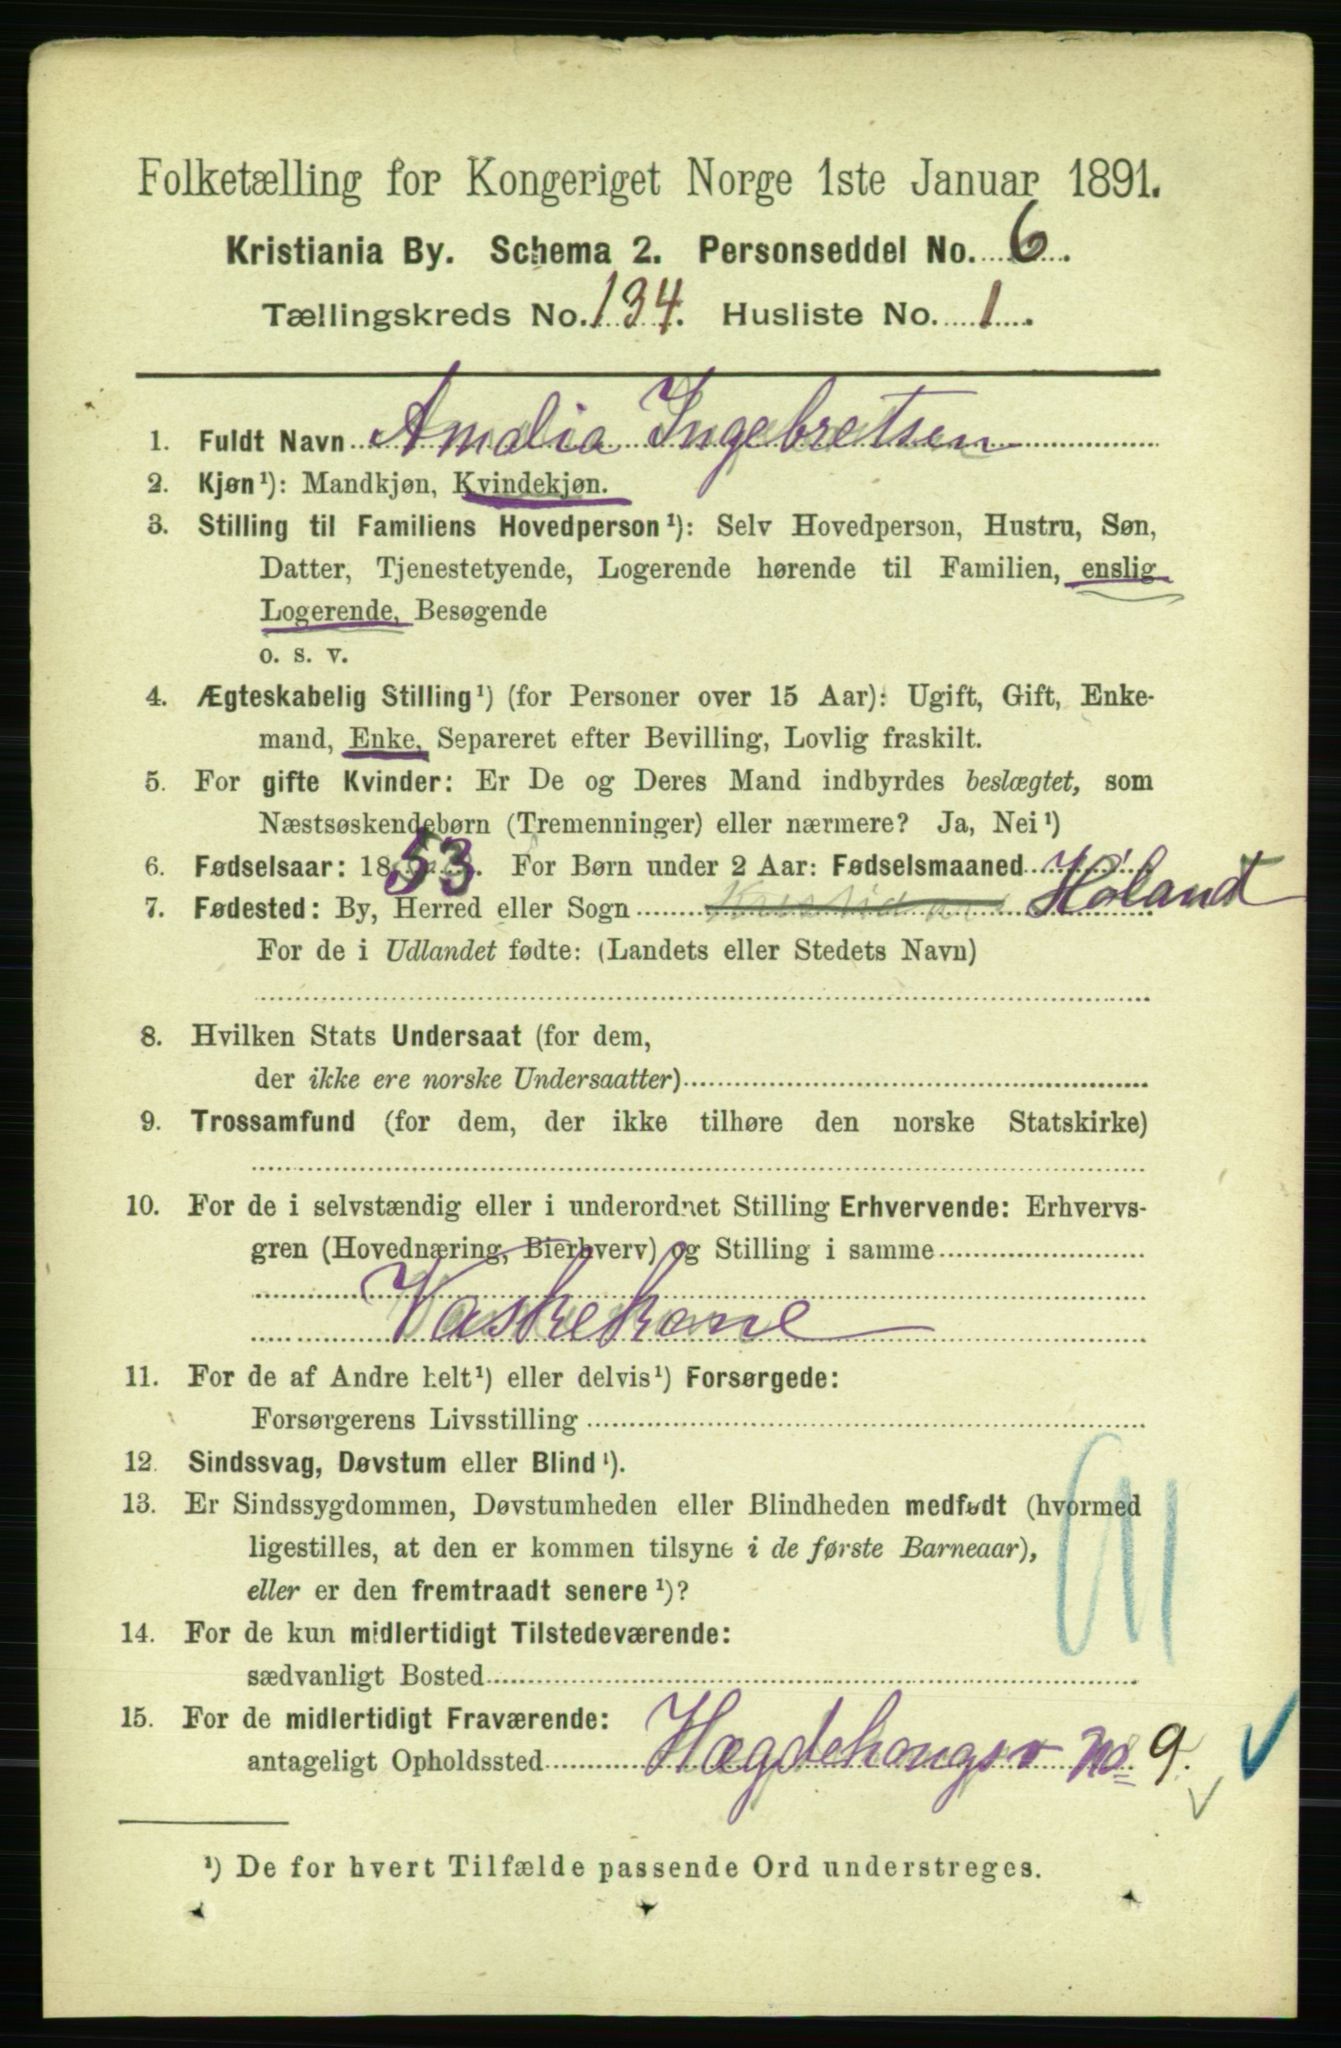 Folketælling for Kongeriget Norge 1ste Januar 1891.
Kristiania By. Schema 2. Personseddel No. 6.
Tællingskreds No. 134. Husliste No. 1.
1. Fuldt Navn Amalia Ingebretsen
2. Kjøn¹): Mandkjøn, Kvindekjøn.
3. Stilling til Familiens Hovedperson¹): Selv Hovedperson, Hustru, Søn,
Datter, Tjenestetyende, Logerende hørende til Familien, enslig
Logerende, Besøgende
o. s. v.
4. Ægteskabelig Stilling¹) (for Personer over 15 Aar): Ugift, Gift, Enke-
mand, Enke, Separeret efter Bevilling, Lovlig fraskilt.
5. For gifte Kvinder: Er De og Deres Mand indbyrdes beslægtet, som
Næstsøskendebørn (Tremenninger) eller nærmere? Ja, Nei¹)
6. Fødselsaar: 1853. For Børn under 2 Aar: Fødselsmaaned
7. Fødested: By, Herred eller Sogn Kristiania Høland
For de i Udlandet fødte: (Landets eller Stedets Navn)
8. Hvilken Stats Undersaat (for dem,
der ikke ere norske Undersaatter)
9. Trossamfund (for dem, der ikke tilhøre den norske Statskirke)
10. For de i selvstændig eller i underordnet Stilling Erhvervende: Erhvervs-
gren (Hovednæring, Bierhverv) og Stilling i samme
Vaskekone
11. For de af Andre helt¹) eller delvis¹) Forsørgede:
Forsørgerens Livsstilling
12. Sindssvag, Døvstum eller Blind¹).
13. Er Sindssygdommen, Døvstumheden eller Blindheden medfødt (hvormed
ligestilles, at den er kommen tilsyne i de første Barneaar),
eller er den fremtraadt senere¹)?
14. For de kun midlertidigt Tilstedeværende:
sædvanligt Bosted
15. For de midlertidigt Fraværende:
antageligt Opholdssted Hægdehaugsv no 9.
¹) De for hvert Tilfælde passende Ord understreges.